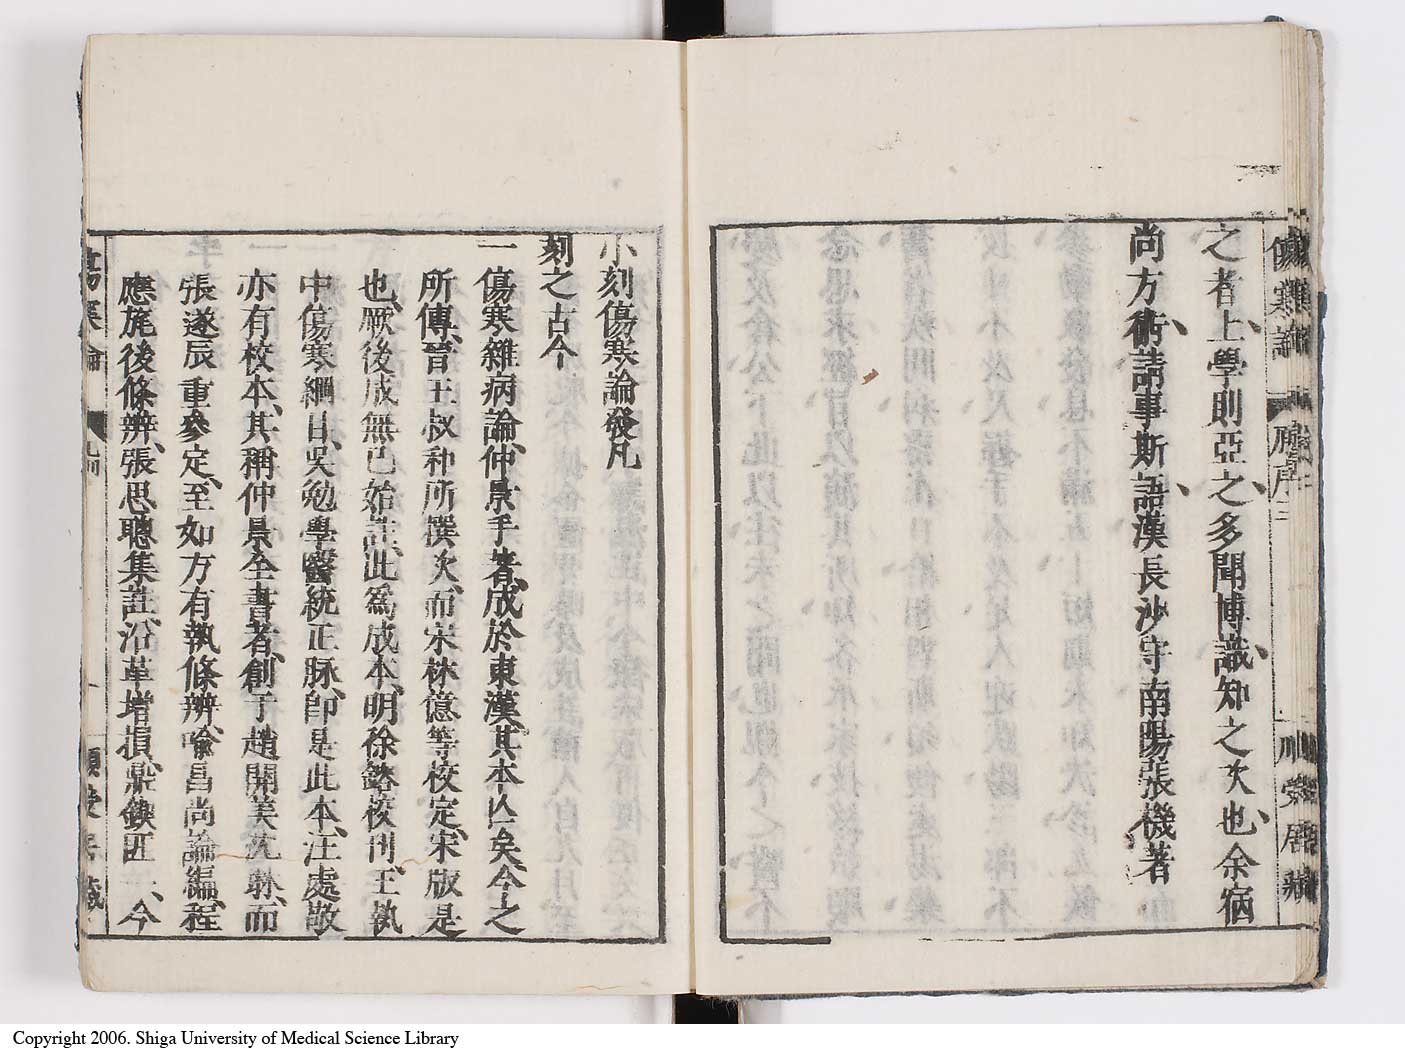 之者上學則亞之多聞博識知之次也余宿
尚方術請事斯語漢長沙守南陽張機著
傷寒論
原序
小刻傷寒論發凡
刻之古今
一傷寒雜病論仲景手著成於東漢其本亾矣今之
所傳晉王叔和所撰次而宋林億等校定宋版是
也厥後成無已始註此爲成本明徐鎔校刊王執
中傷寒綱目吳勉學醫統正脉卽是此本汪處敬
亦有校本其稱仲景全書者創于趙開美沈琳而
張遂辰重參定至如方有執條辨喩昌尚論編程
應旄後條辨張思聰集註沿革增損鼎鐭匪一今
Copyright 2006. Shiga University of Medical Science Library